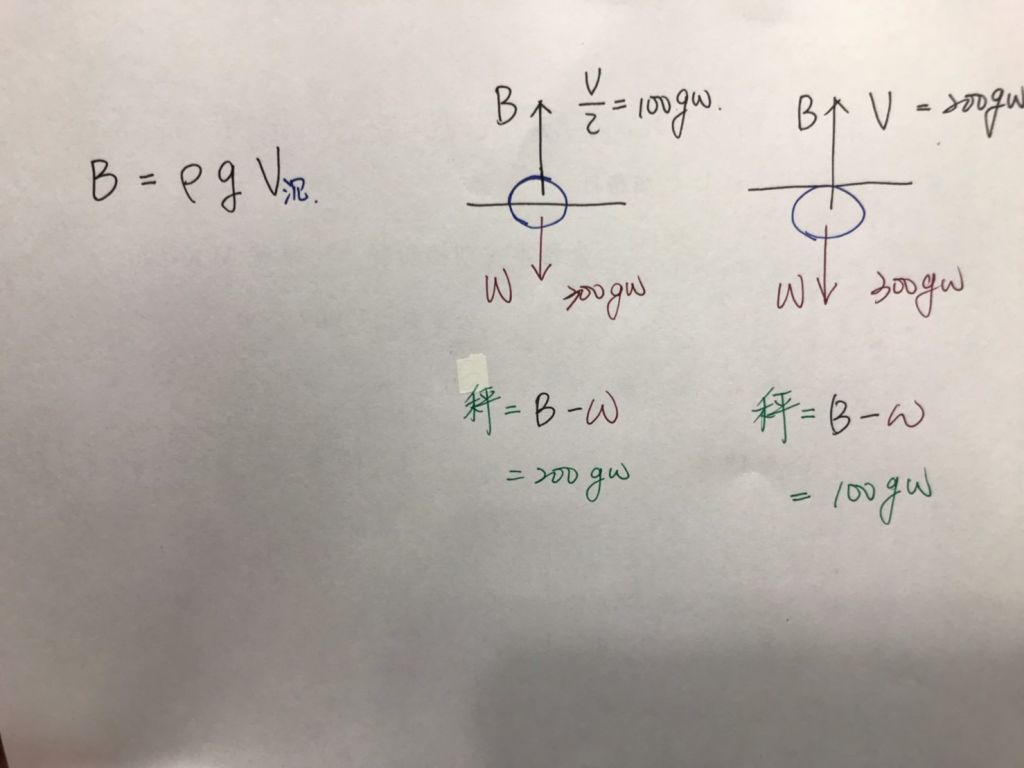 B = ρ g V沉.
B V/2 = 100gw.
W 300gw
秤 = B - W
= 200 gw
B V = 200gw
W 300gw
秤 = B - W
= 100gw